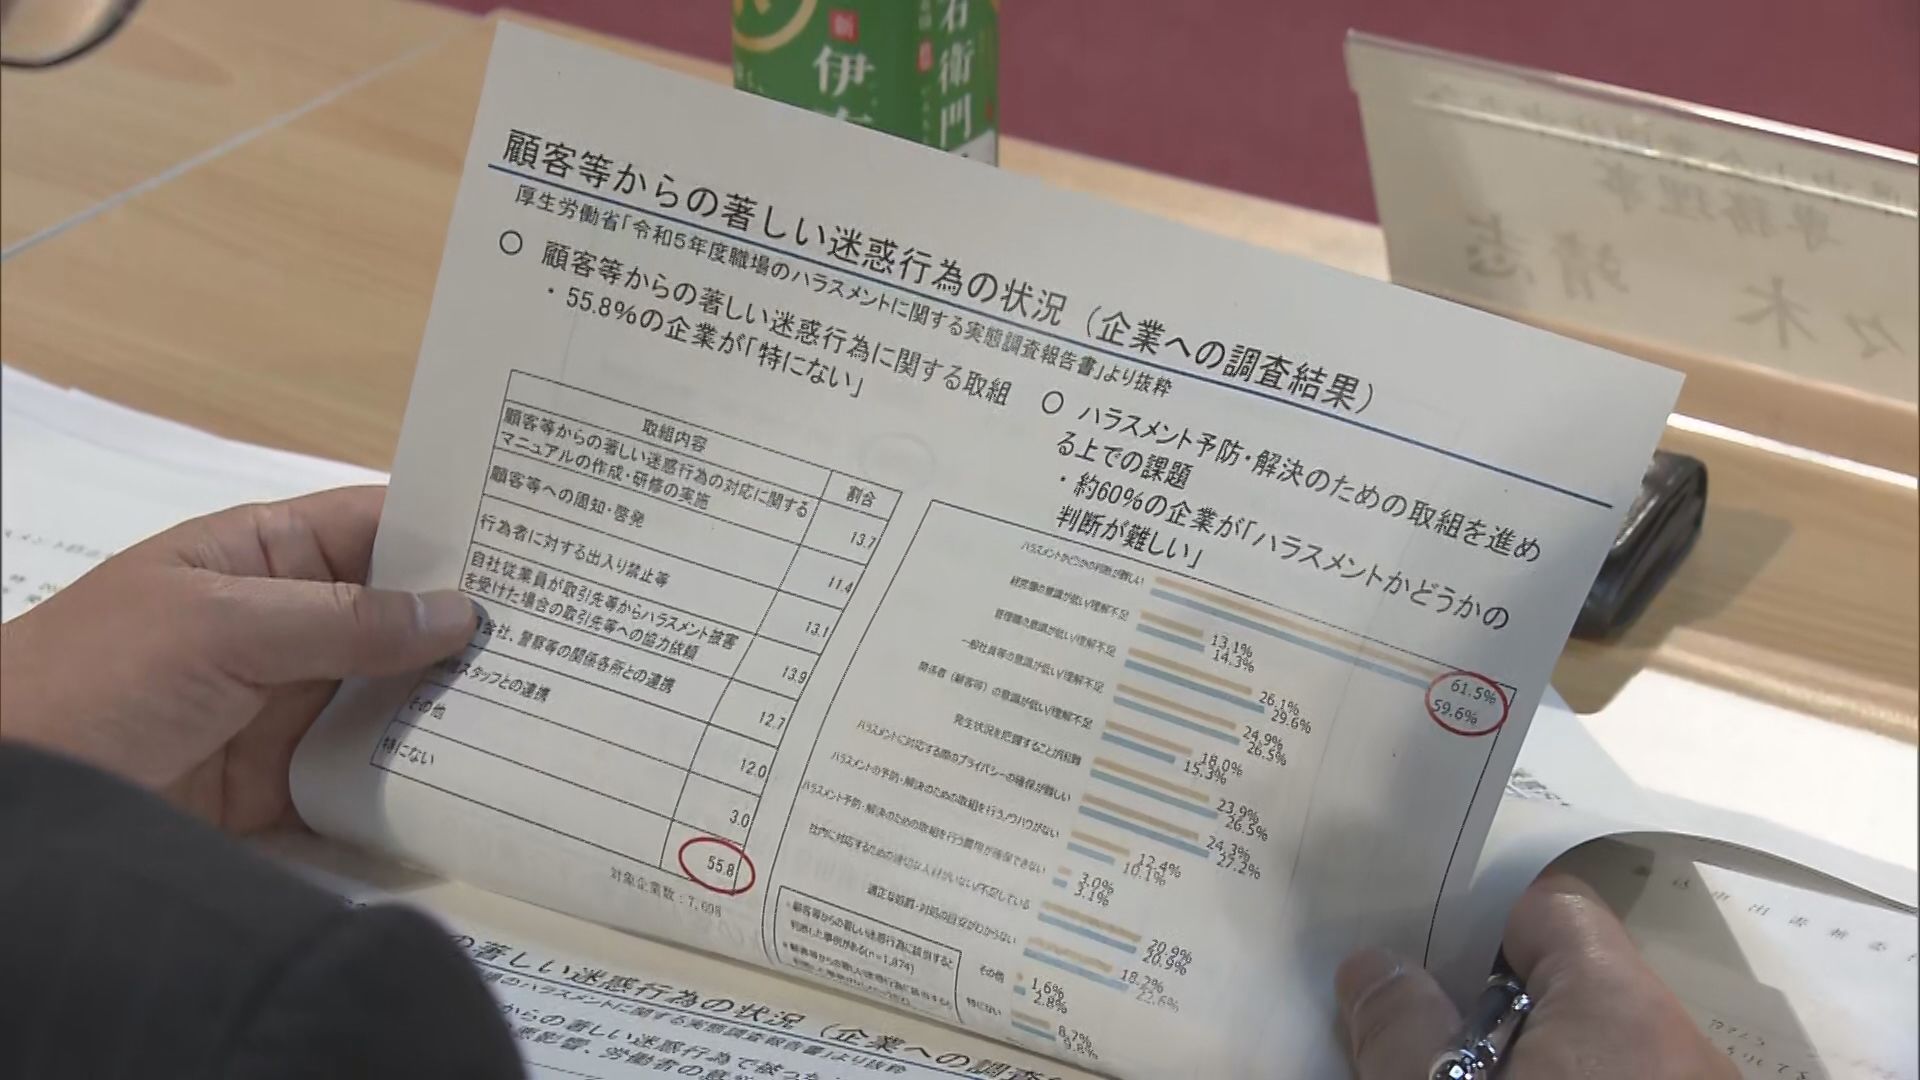 新
伊
右衛門
顧客等からの著しい迷惑行為の状況（企業への調査結果）
厚生労働省「令和5年度職場のハラスメントに関する実態調査報告書」より抜粋
○ 顧客等からの著しい迷惑行為に関する取組
・55.8%の企業が「特にない」
取組内容 割合
顧客等からの著しい迷惑行為の対応に関する
マニュアルの作成・研修の実施 13.7
顧客等への周知・啓発 11.4
行為者に対する出入り禁止等 13.1
自社従業員が取引先等からハラスメント被害
を受けた場合の取引先等への協力依頼 13.9
会社、警察等の関係各所との連携 12.7
スタッフとの連携 12.0
その他 3.0
特にない 55.8
対象企業数：7,698
○ ハラスメント予防・解決のための取組を進め
る上での課題
・約60%の企業が「ハラスメントかどうかの
判断が難しい」
ハラスメントかどうかの判断が難しい 61.5% 59.6%
経営層の意識が低い/理解不足 13.1% 14.3%
管理職の意識が低い/理解不足 26.1% 29.6%
一般社員等の意識が低い/理解不足 24.9% 26.5%
関係者（顧客等）の意識が低い/理解不足 18.0% 15.3%
発生状況を把握することが困難 23.9% 26.5%
ハラスメントに対応する際のプライバシーの確保が難しい 24.3% 27.2%
ハラスメントの予防・解決のための取組を行うノウハウがない 12.4% 10.1%
ハラスメント予防・解決のための取組を行う費用が確保できない 3.0% 3.1%
社内に対応するための適切な人材がいない/不足している 20.9% 20.9%
適正な処罰・対処の目安がわからない 18.2% 22.6%
その他 1.6% 2.8%
特にない 8.7% 9.8%
顧客等からの著しい迷惑行為に該当すると
判断した事例がある(n=1,874)
専務理事
々木
靖志
の著しい迷惑行為の状況（企業への調査
のハラスメントに関する実態調査報告書」より抜粋
からの著しい迷惑行為で被った
悪影響、労働者の意